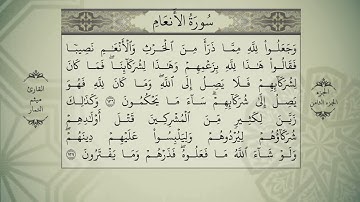 سُورَةُ الأَنعَامِ
وَجَعَلُوا۟ لِلَّهِ مِمَّا ذَرَأَ مِنَ ٱلْحَرْثِ وَٱلْأَنْعَٰمِ نَصِيبًا
فَقَالُوا۟ هَٰذَا لِلَّهِ بِزَعْمِهِمْ وَهَٰذَا لِشُرَكَآئِنَا ۖ فَمَا كَانَ
لِشُرَكَآئِهِمْ فَلَا يَصِلُ إِلَى ٱللَّهِ ۖ وَمَا كَانَ لِلَّهِ فَهُوَ
يَصِلُ إِلَىٰ شُرَكَآئِهِمْ ۗ سَآءَ مَا يَحْكُمُونَ ١٣٦ وَكَذَٰلِكَ
زَيَّنَ لِكَثِيرٍ مِّنَ ٱلْمُشْرِكِينَ قَتْلَ أَوْلَٰدِهِمْ
شُرَكَآؤُهُمْ لِيُرْدُوهُمْ وَلِيَلْبِسُوا۟ عَلَيْهِمْ دِينَهُمْ ۖ
وَلَوْ شَآءَ ٱللَّهُ مَا فَعَلُوهُ ۖ فَذَرْهُمْ وَمَا يَفْتَرُونَ ١٣٧
الجزء
الجزء الثامن
القارئ
ميثم
التمار